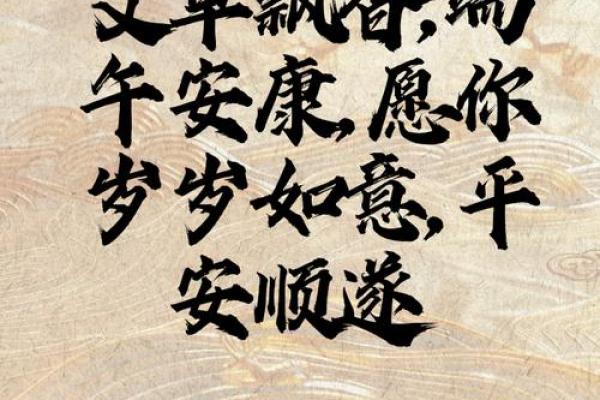 艾草飘香,端
午安康,愿你
岁岁如意,平
安顺遂